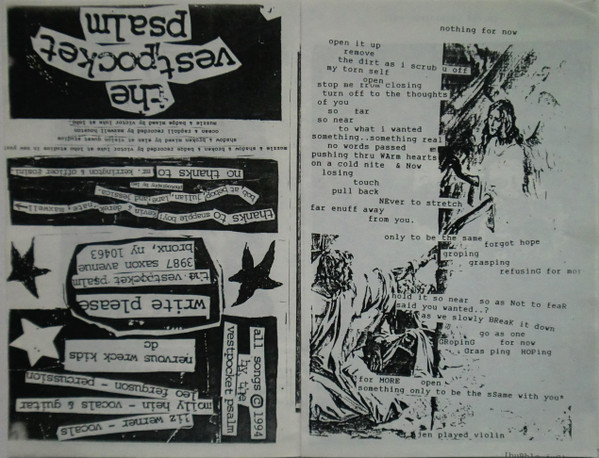 the
vestpocket
psalm
no thanks to
mr. kerrington & officer rosini
thanks to snapple boys
write please
the vestpocket psalm
3987 saxon avenue
bronx, ny 10463
nervous wreck kids
dc
liz werner - vocals
molly hein - vocals & guitar
leo ferguson - percussion
all songs © 1994
by the
vestpocket psalm
nothing for now
open it up
remove
the dirt as i scrub u off
my torn self
open
stop me from closing
turn off to the thoughts
of you
so far
so near
to what i wanted
something..something real
no words passed
pushing thru WArm hearts
on a cold nite & Now
losing
touch
pull back
NEver to stretch
far enuff away
from you.
only to be the same
forgot hope
groping
grasping
refusinG for me
hold it so near so as Not to feaR
said you wanted..?
as we slowly BReaK it down
go as one
GRopinG for now
Gras ping HOPing
for MORE open
something only to be the sSame with you*
jen played violin